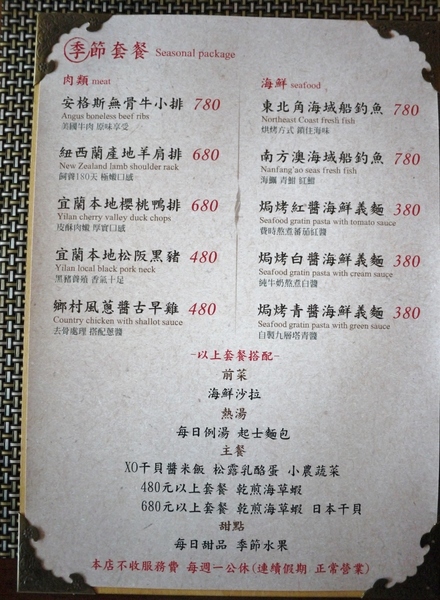 季節套餐 Seasonal package
肉類 meat
安格斯無骨牛小排 780
Angus boneless beef ribs
美國牛肉 原味享受
紐西蘭產地羊肩排 680
New Zealand lamb shoulder rack
飼養180天 極嫩口感
宜蘭本地櫻桃鴨排 680
Yilan cherry valley duck chops
皮酥肉嫩 厚實口感
宜蘭本地松阪黑豬 480
Yilan local black pork neck
黑豬養殖 香氣十足
鄉村風蔥醬古早雞 480
Country chicken with shallot sauce
去骨處理 搭配蔥醬
海鮮 seafood
東北角海域船釣魚 780
Northeast Coast fresh fish
烘烤方式 鎖住海味
南方澳海域船釣魚 780
Nanfang'ao seas fresh fish
青魽 紅魽
焗烤紅醬海鮮義麵 380
Seafood gratin pasta with tomato sauce
費時熬煮蕃茄紅醬
焗烤白醬海鮮義麵 380
Seafood gratin pasta with cream sauce
純牛奶熬煮白醬
焗烤青醬海鮮義麵 380
Seafood gratin pasta with green sauce
自製九層塔青醬
-以上套餐搭配-
前菜
海鮮沙拉
熱湯
每日例湯 起士麵包
主餐
XO干貝醬米飯 松露乳酪蛋 小農蔬菜
480元以上套餐 乾煎海草蝦
680元以上套餐 乾煎海草蝦 日本干貝
甜點
每日甜品 季節水果
本店不收服務費 每週一公休(連續假期 正常營業)